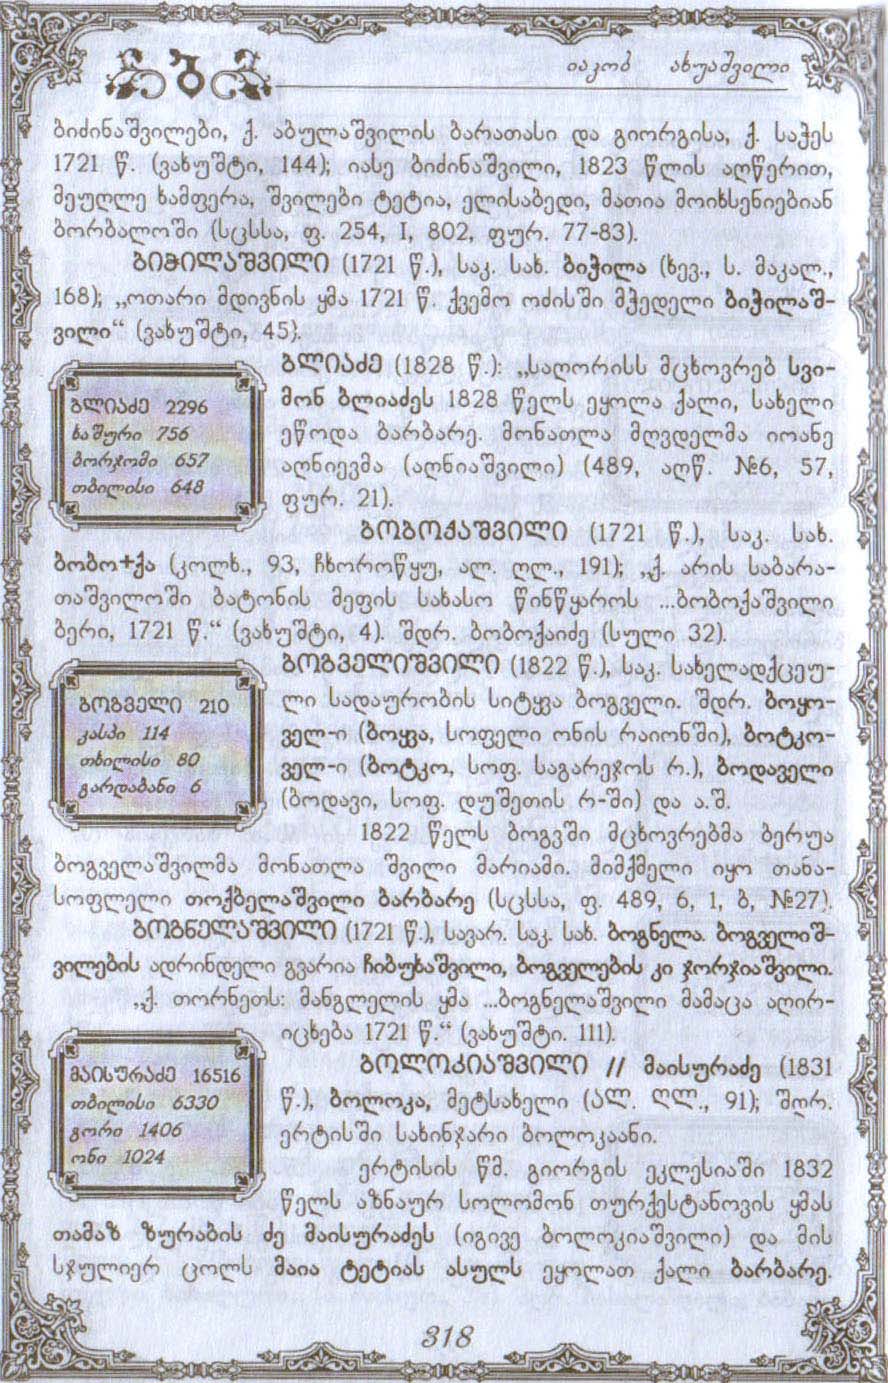 იაკობ ახუაშვილი
ბიძინაშვილები, ქ. აბულაშვილის ბარათასი და გიორგისა, ქ. საჭეს
1721 წ. (ვახუშტი, 144); იასე ბიძინაშვილი, 1823 წლის აღწერით,
მეუღლე ხამფერა, შვილები ტეტია, ელისაბედი, მათია მოიხსენიებიან
ბორბალოში (სცსსა, ფ. 254, I, 802, ფურ. 77-83).
ბიჭილაშვილი (1721 წ.), საკ. სახ. ბიჭილა (ხევ., ს. მაკალ.,
168); „ოთარი მდივნის ყმა 1721 წ. ქვემო ოძისში მჭედელი ბიჭილაშ-
ვილი“ (ვახუშტი, 45).
ბლიაძე (1828 წ.): „საღორისს მცხოვრებ სვი-
მონ ბლიაძეს 1828 წელს ეყოლა ქალი, სახელი
ეწოდა ბარბარე. მონათლა მღვდელმა იოანე
აღნიევმა (აღნიაშვილი) (489, აღწ. №6, 57,
ფურ. 21).
ბლიაძე 2296
ხაშური 756
ბორჯომი 657
თბილისი 648
ბობოქაშვილი (1721 წ.), საკ. სახ.
ბობო+ქა (კოლხ., 93, ჩხოროწყუ, ალ. ღლ., 191); „ქ. არის საბარა-
თაშვილოში ბატონის მეფის სახასო წინწყაროს ...ბობოქაშვილი
ბერი, 1721 წ.“ (ვახუშტი, 4). შდრ. ბობოქაიძე (სული 32).
ბოგველიშვილი (1822 წ.), საკ. სახელადქცეუ-
ლი სადაურობის სიტყვა ბოგველი. შდრ. ბოყო-
ველ-ი (ბოყვა, სოფელი ონის რაიონში), ბოტკო-
ველ-ი (ბოტკო, სოფ. საგარეჯოს რ.), ბოდაველი
(ბოდავი, სოფ. დუშეთის რ-ში) და ა.შ.
ბოგველი 210
კასპი 114
თბილისი 80
გარდაბანი 6
1822 წელს ბოგვში მცხოვრებმა ბერუა
ბოგველაშვილმა მონათლა შვილი მარიამი. მიმქმელი იყო თანა-
სოფლელი თოქბელაშვილი ბარბარე (სცსსა, ფ. 489, 6, 1, ბ, №27).
ბოგნელაშვილი (1721 წ.), სავარ. საკ. სახ. ბოგნელა. ბოგველიშ-
ვილების ადრინდელი გვარია ჩიბუხაშვილი, ბოგველების კი ჯორჯიაშვილი.
„ქ. თორნეთს: მანგლელის ყმა ...ბოგნელაშვილი მამაცა აღირ-
იცხება 1721 წ.“ (ვახუშტი. 111).
ბოლოკიაშვილი // მაისურაძე (1831
წ.), ბოლოკა, მეტსახელი (ალ. ღლ., 91); შდრ.
ერტისში სახინჯარი ბოლოკაანი.
მაისურაძე 16516
თბილისი 6330
გორი 1406
ონი 1024
ერტისის წმ. გიორგის ეკლესიაში 1832
წელს აზნაურ სოლომონ თურქესტანოვის ყმას
თამაზ ზურაბის ძე მაისურაძეს (იგივე ბოლოკიაშვილი) და მის
სჯულიერ ცოლს მაია ტეტიას ასულს ეყოლათ ქალი ბარბარე.
318